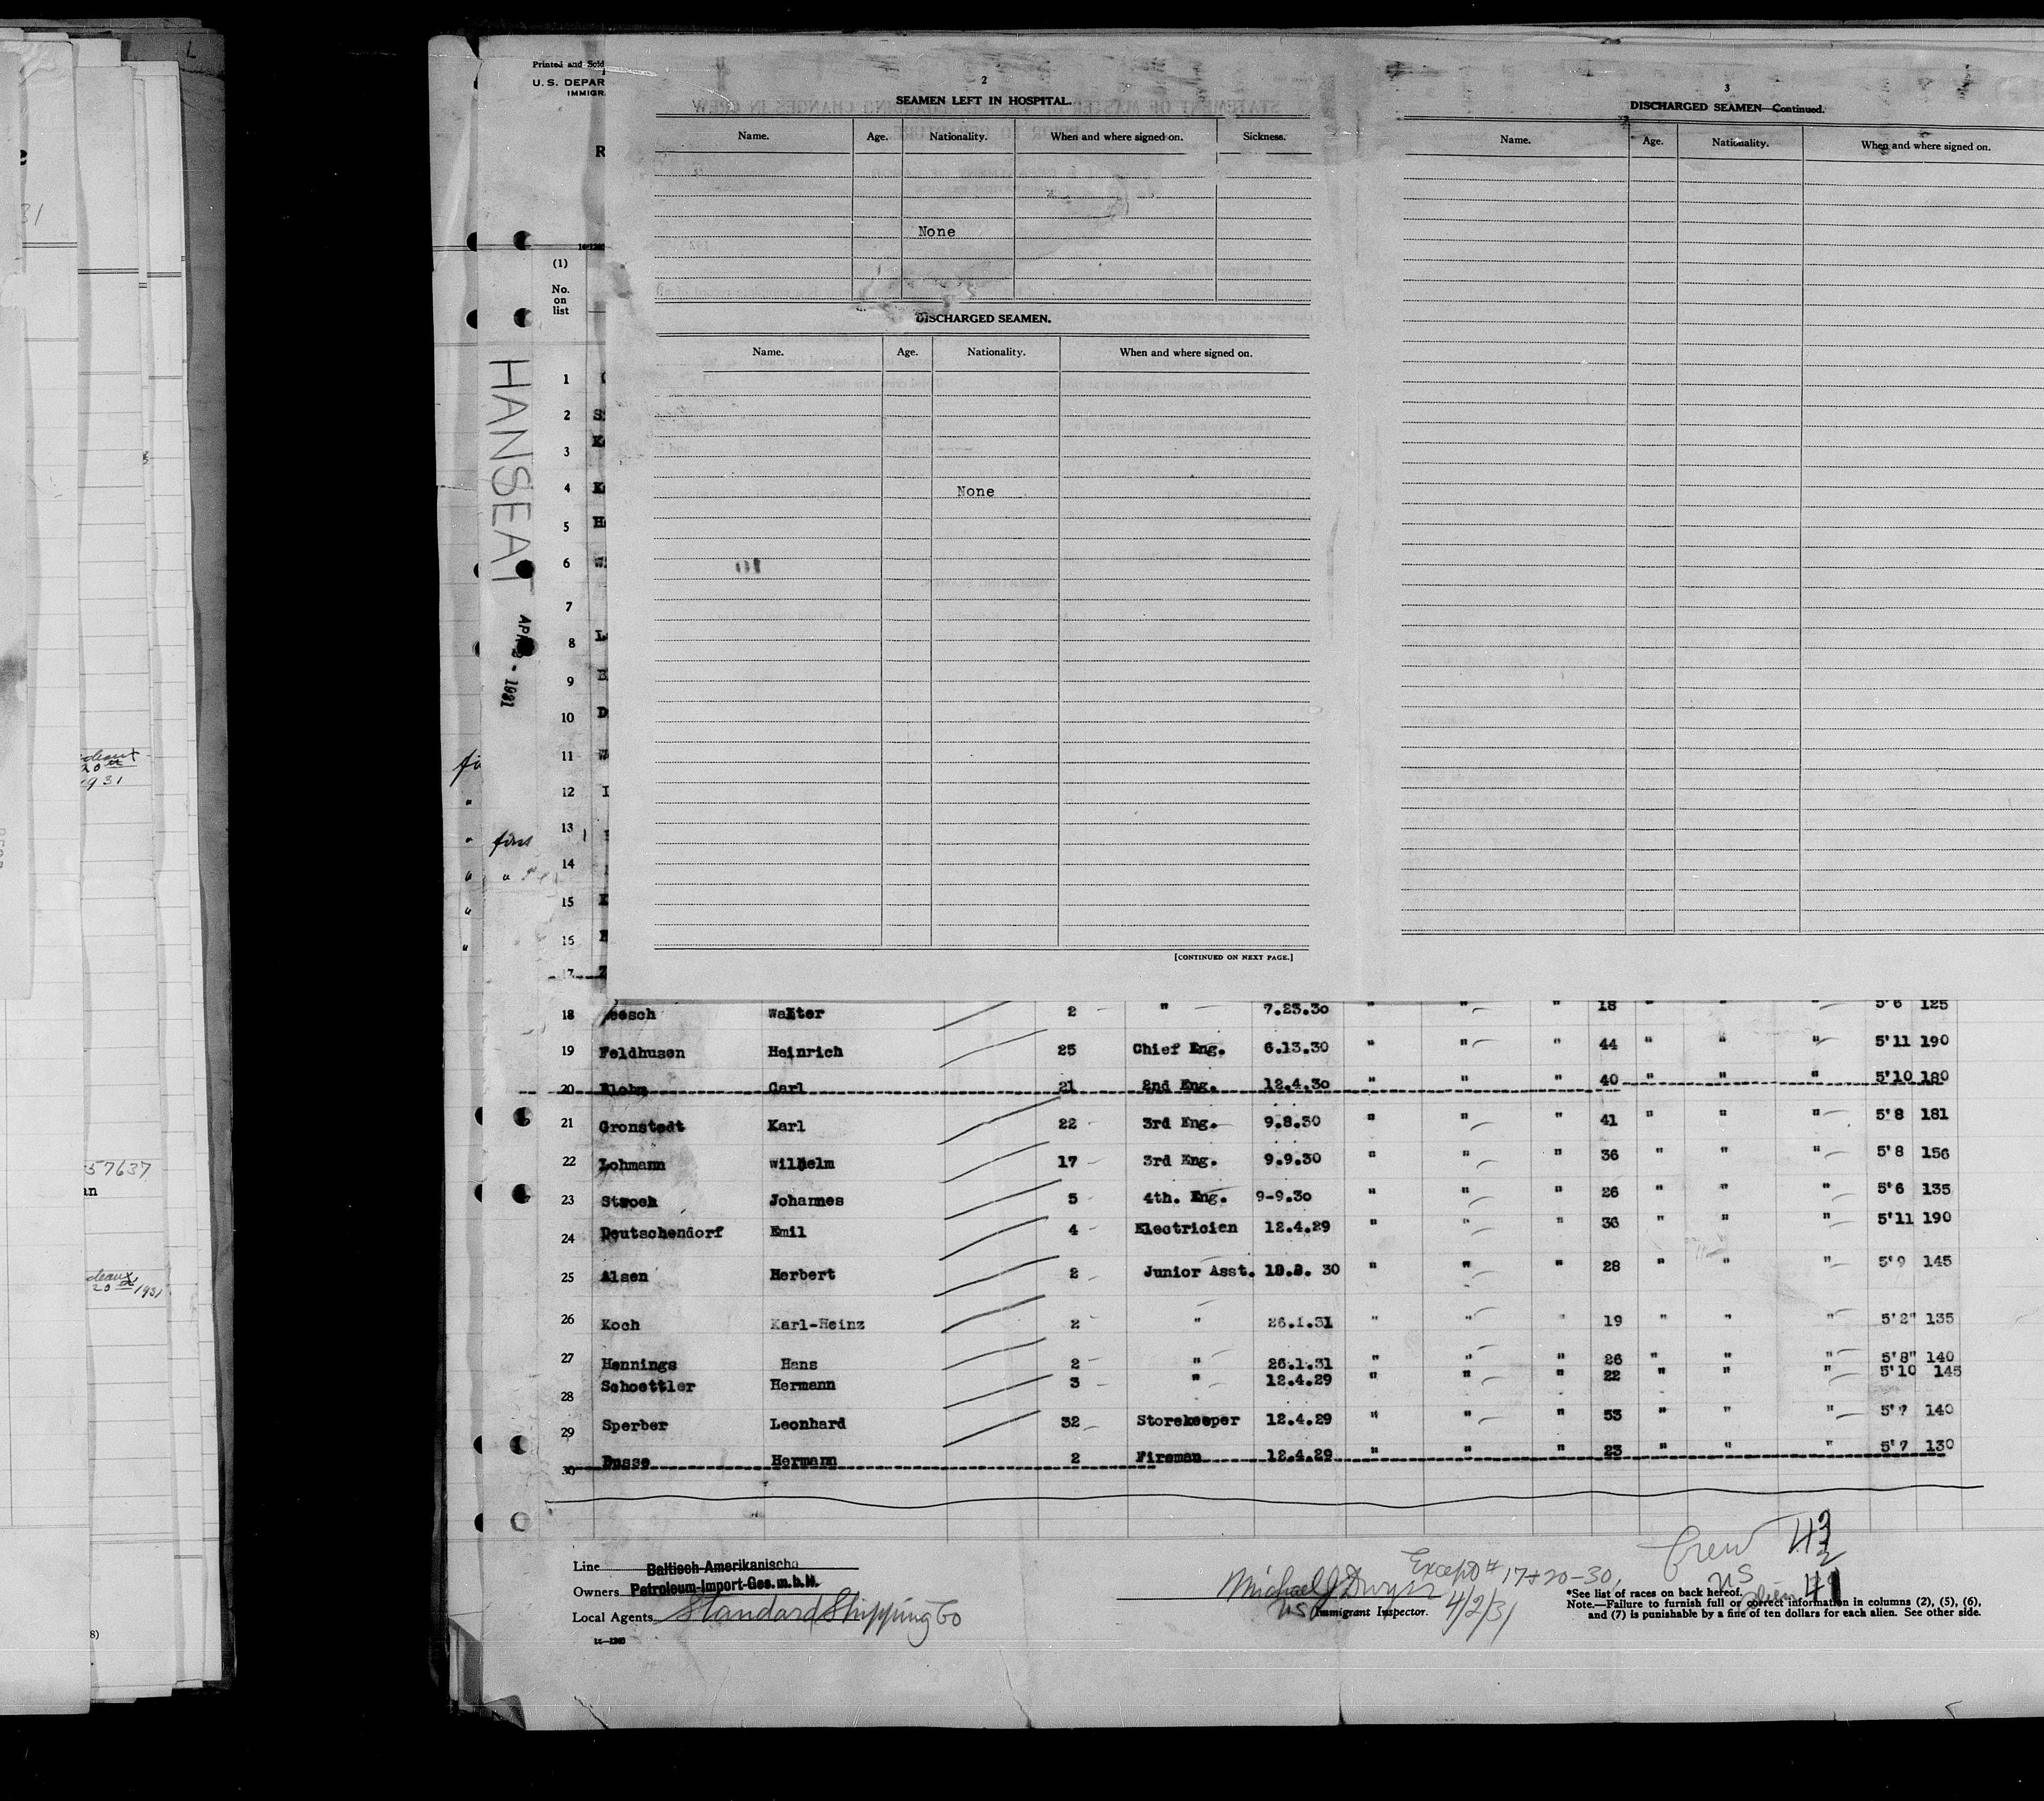 Printed and Sold
U. S. DEPAR
IMMIGR
2
SEAMEN LEFT IN HOSPITAL.
Name. Age. Nationality. When and where signed on. Sickness.
None
DISCHARGED SEAMEN.
Name. Age. Nationality. When and where signed on.
None
[CONTINUED ON NEXT PAGE.]
3
DISCHARGED SEAMEN—Continued.
Name. Age. Nationality. When and where signed on.
(1)
No.
on
list
HANSEAT
APR 2 - 1931
1
2
3
4
5
6
7
8
9
10
11
12
13
first
14
15
16
17
18 Walter 2 " 7.23.30 " " " 18 " " " 5'6 125
19 Feldhusen Heinrich 25 Chief Eng. 6.13.30 " " " 44 " " " 5'11 190
20 Blohm Carl 21 2nd Eng. 12.4.30 " " " 40 " " " 5'10 180
21 Gronstedt Karl 22 3rd Eng. 9.8.30 " " " 41 " " " 5'8 181
22 Lohmann Wilhelm 17 3rd Eng. 9.9.30 " " " 36 " " " 5'8 156
23 Johannes 5 4th. Eng. 9-9.30 " " " 26 " " " 5'6 135
24 Deutschendorf Emil 4 Electricien 12.4.29 " " " 36 " " " 5'11 190
25 Alsen Herbert 2 Junior Asst. 30 " " " 28 " " " 5'9 145
26 Koch Karl-Heinz 2 " 26.1.31 " " " 19 " " " 5'2" 135
27 Hennings Hans 2 " 26.1.31 " " " 26 " " " 5'8" 140
28 Schoettler Hermann 3 " 12.4.29 " " " 22 " " " 5'10 145
29 Sperber Leonhard 32 Storekeeper 12.4.29 " " " 53 " " " 5'7 140
30 Busse Hermann 2 Fireman 12.4.29 " " " 23 " " " 5'7 130
Line Baltisch-Amerikanische
Owners Petroleum-Import-Ges.m.b.H.
Local Agents Standard Shipping Co
Michael J Dwyer
US Immigrant Inspector.
4/2/31
Except # 17+20-30,
Crew 43
US 2
Alien 41
*See list of races on back hereof.
Note.—Failure to furnish full or correct information in columns (2), (5), (6),
and (7) is punishable by a fine of ten dollars for each alien. See other side.
57637
1931